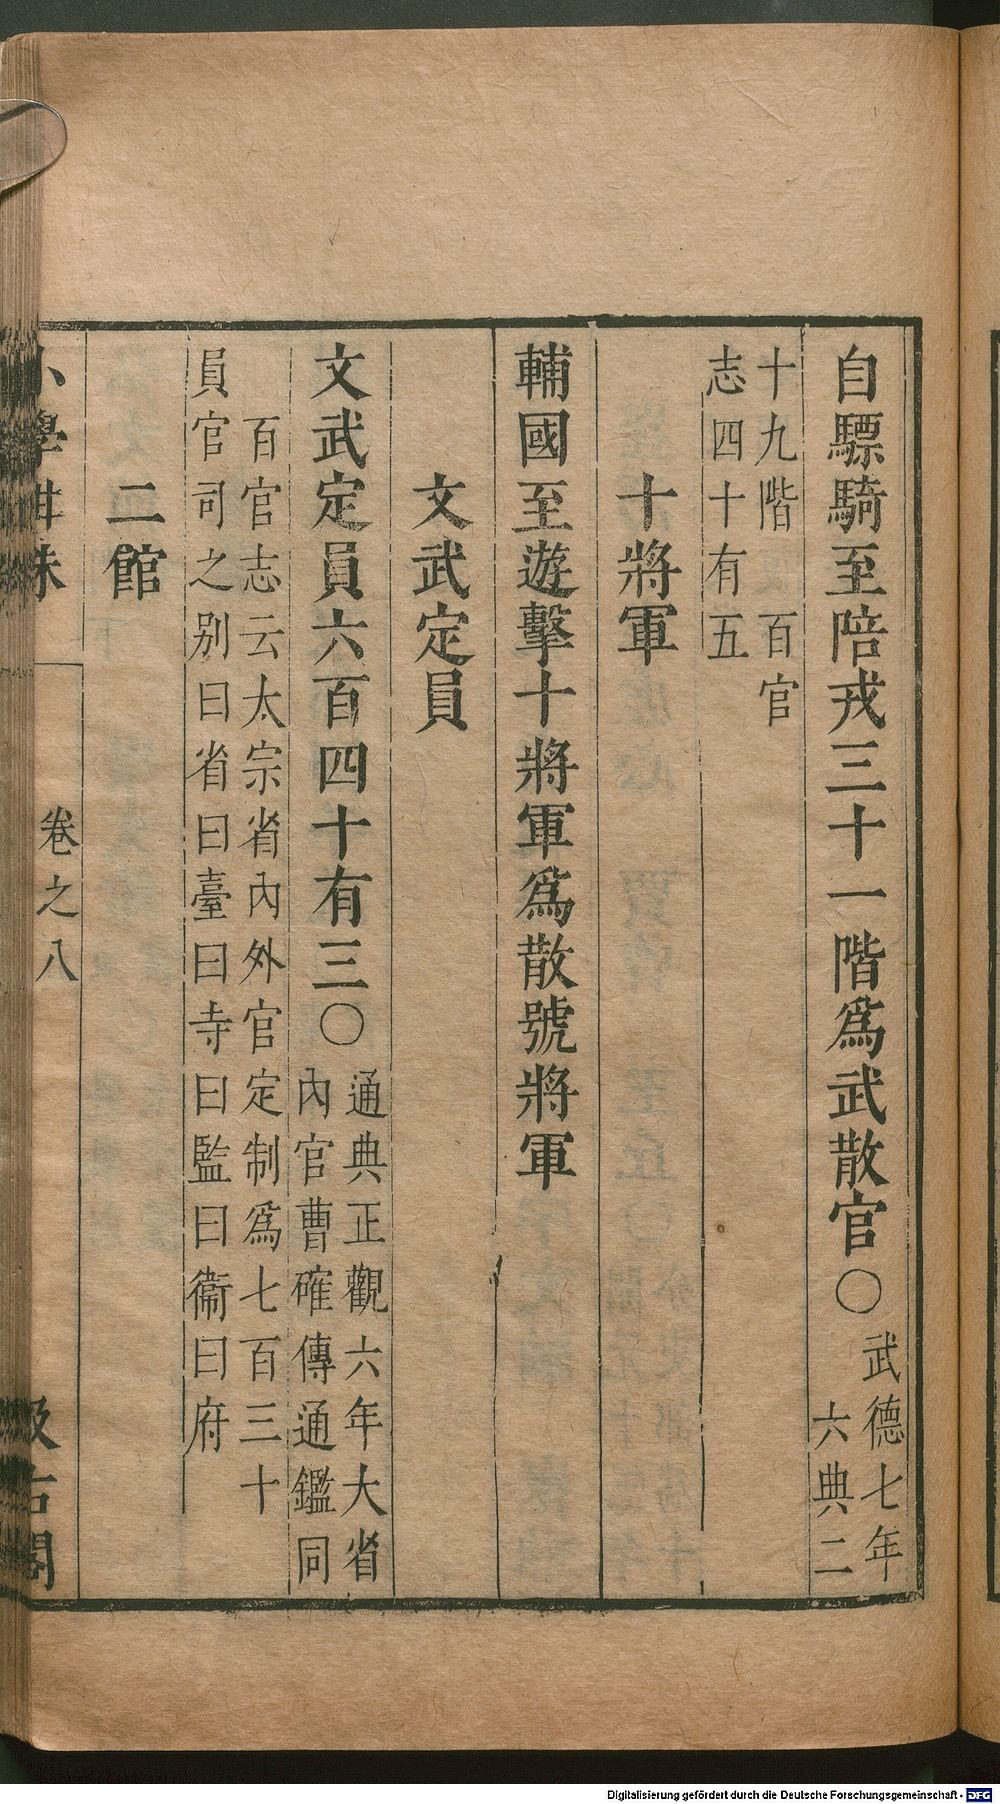 自驃騎至陪戎三十一階爲武散官〇武德七年
六典二
十九階 百官
志四十有五
十將軍
輔國至遊擊十將軍爲散號將軍
文武定員
文武定員六百四十有三〇通典正觀六年大省
內官曹確傳通鑑同
百官志云太宗省內外官定制爲七百三十
員官司之別曰省曰臺曰寺曰監曰衞曰府
二館
小學紺珠
卷之八
汲古閣
Digitalisierung gefördert durch die Deutsche Forschungsgemeinschaft - DFG